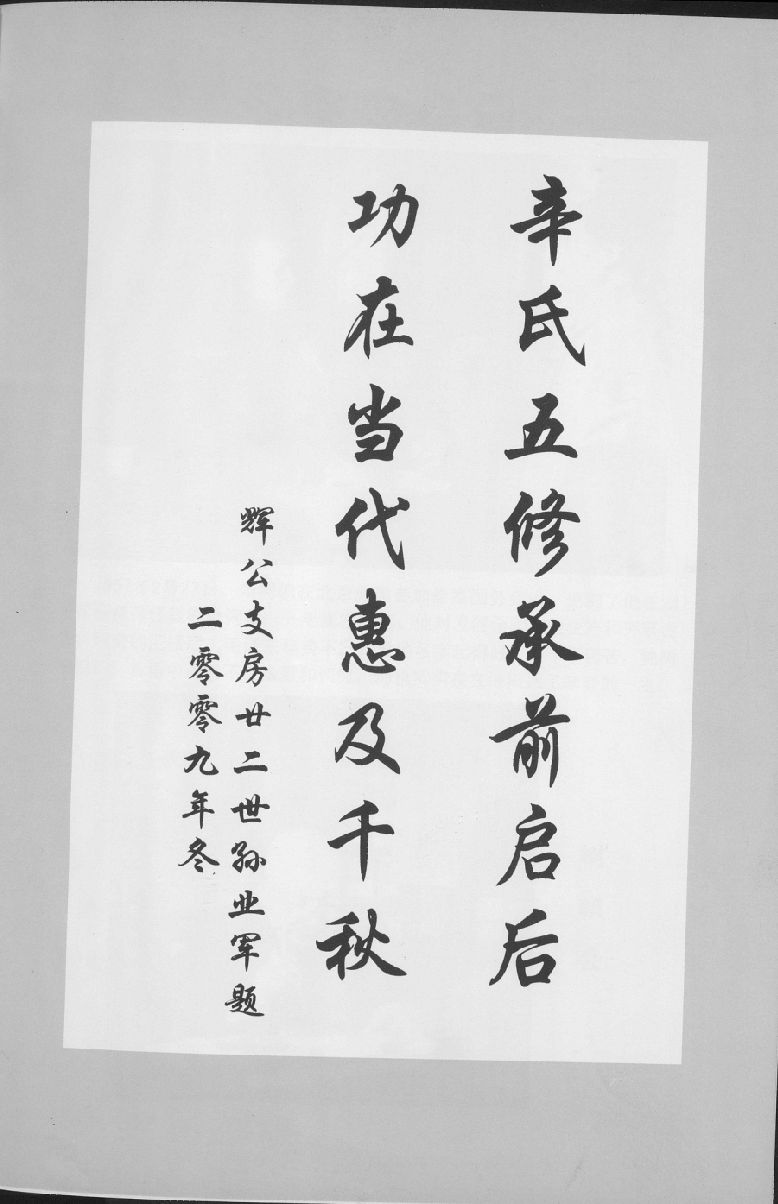 辛氏五修承前启后
功在当代惠及千秋
辉公支房廿二世孙业军题
二零零九年冬